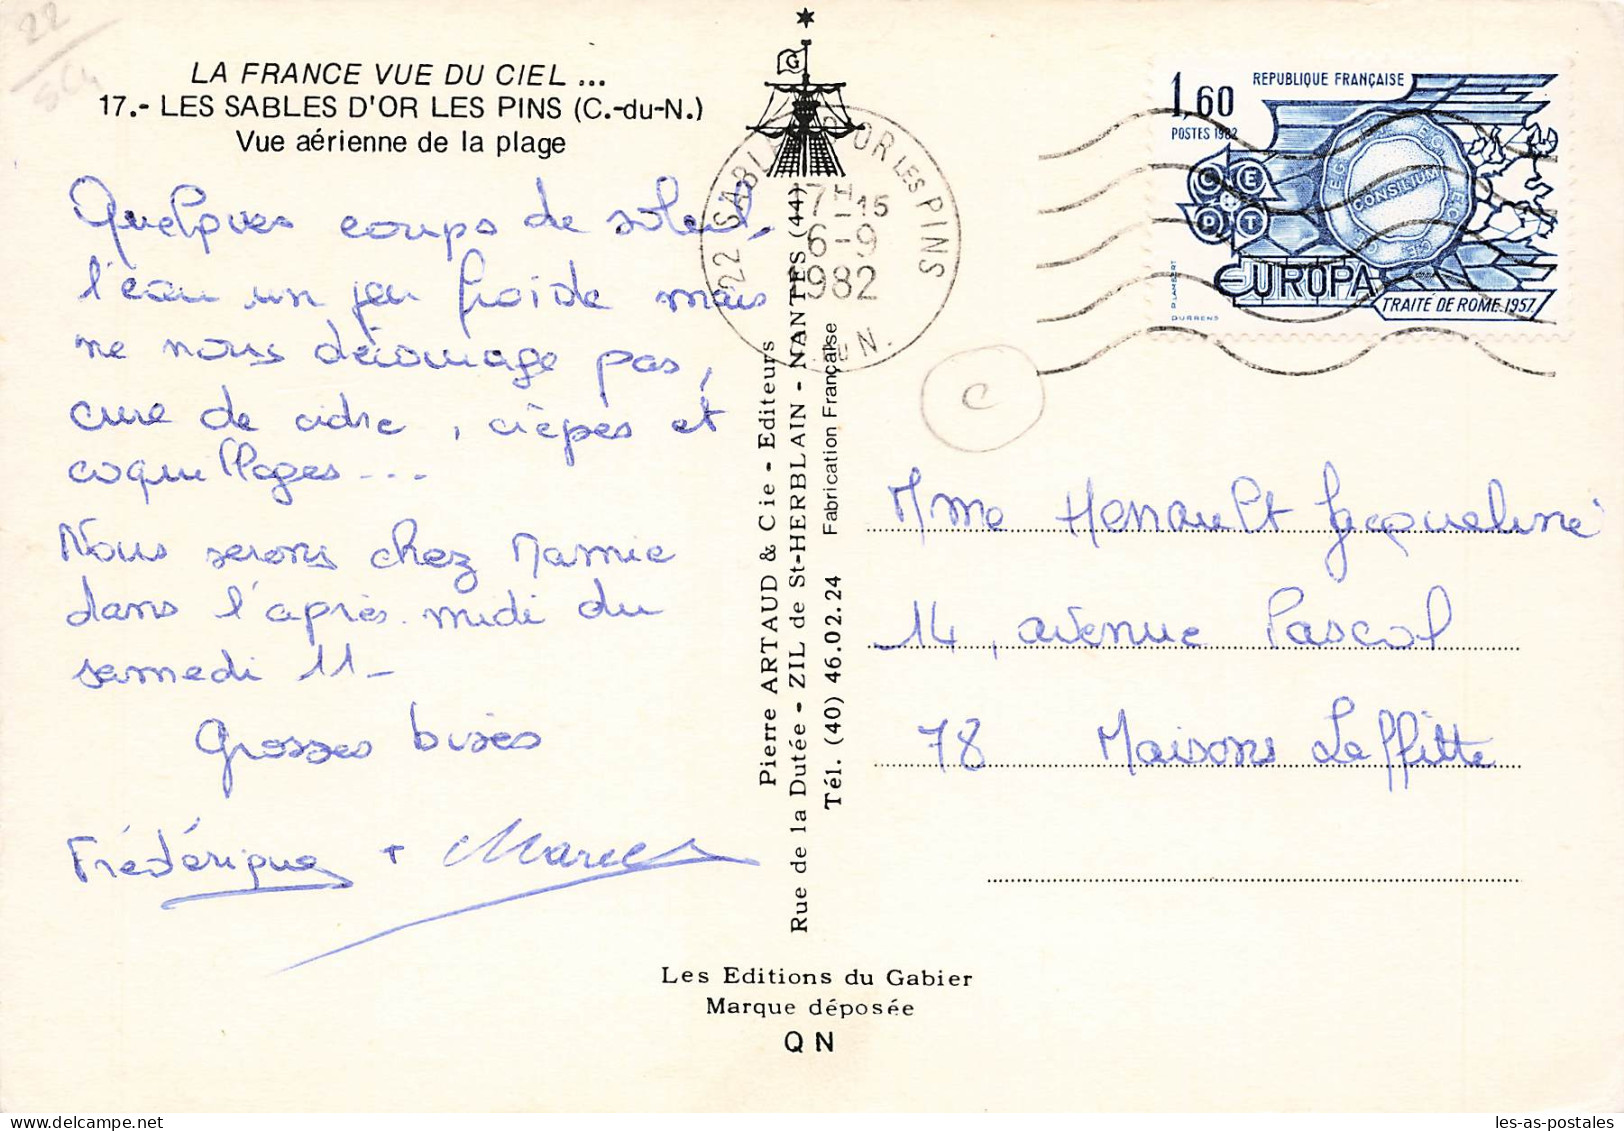 22
LA FRANCE VUE DU CIEL ...
17.- LES SABLES D'OR LES PINS (C.-du-N.)
Vue aérienne de la plage
Quelques coups de soleil,
l'eau un peu froide mais
ne nous décourage pas,
cure de cidre, crêpes et
coquillages...
Nous serons chez Mamie
dans l'après-midi du
samedi 11-
Grosses bises
Frédérique + Marc
G
Pierre ARTAUD & Cie - Editeurs
Rue de la Dutée - ZIL de St-HERBLAIN - NANTES (44)
Tél. (40) 46.02.24 Fabrication Française
Les Editions du Gabier
Marque déposée
Q N
22 SABLES D'OR LES PINS
17H15
6-9
1982
DU N.
1,60
REPUBLIQUE FRANÇAISE
POSTES 1982
CEPT
CONSILIUM
EUROPA
TRAITÉ DE ROME 1957
P. LAMBERT
DURRENS
C
Mme Henault Jacqueline
14, avenue Pascal
78 Maisons Laffitte
les-as-postales